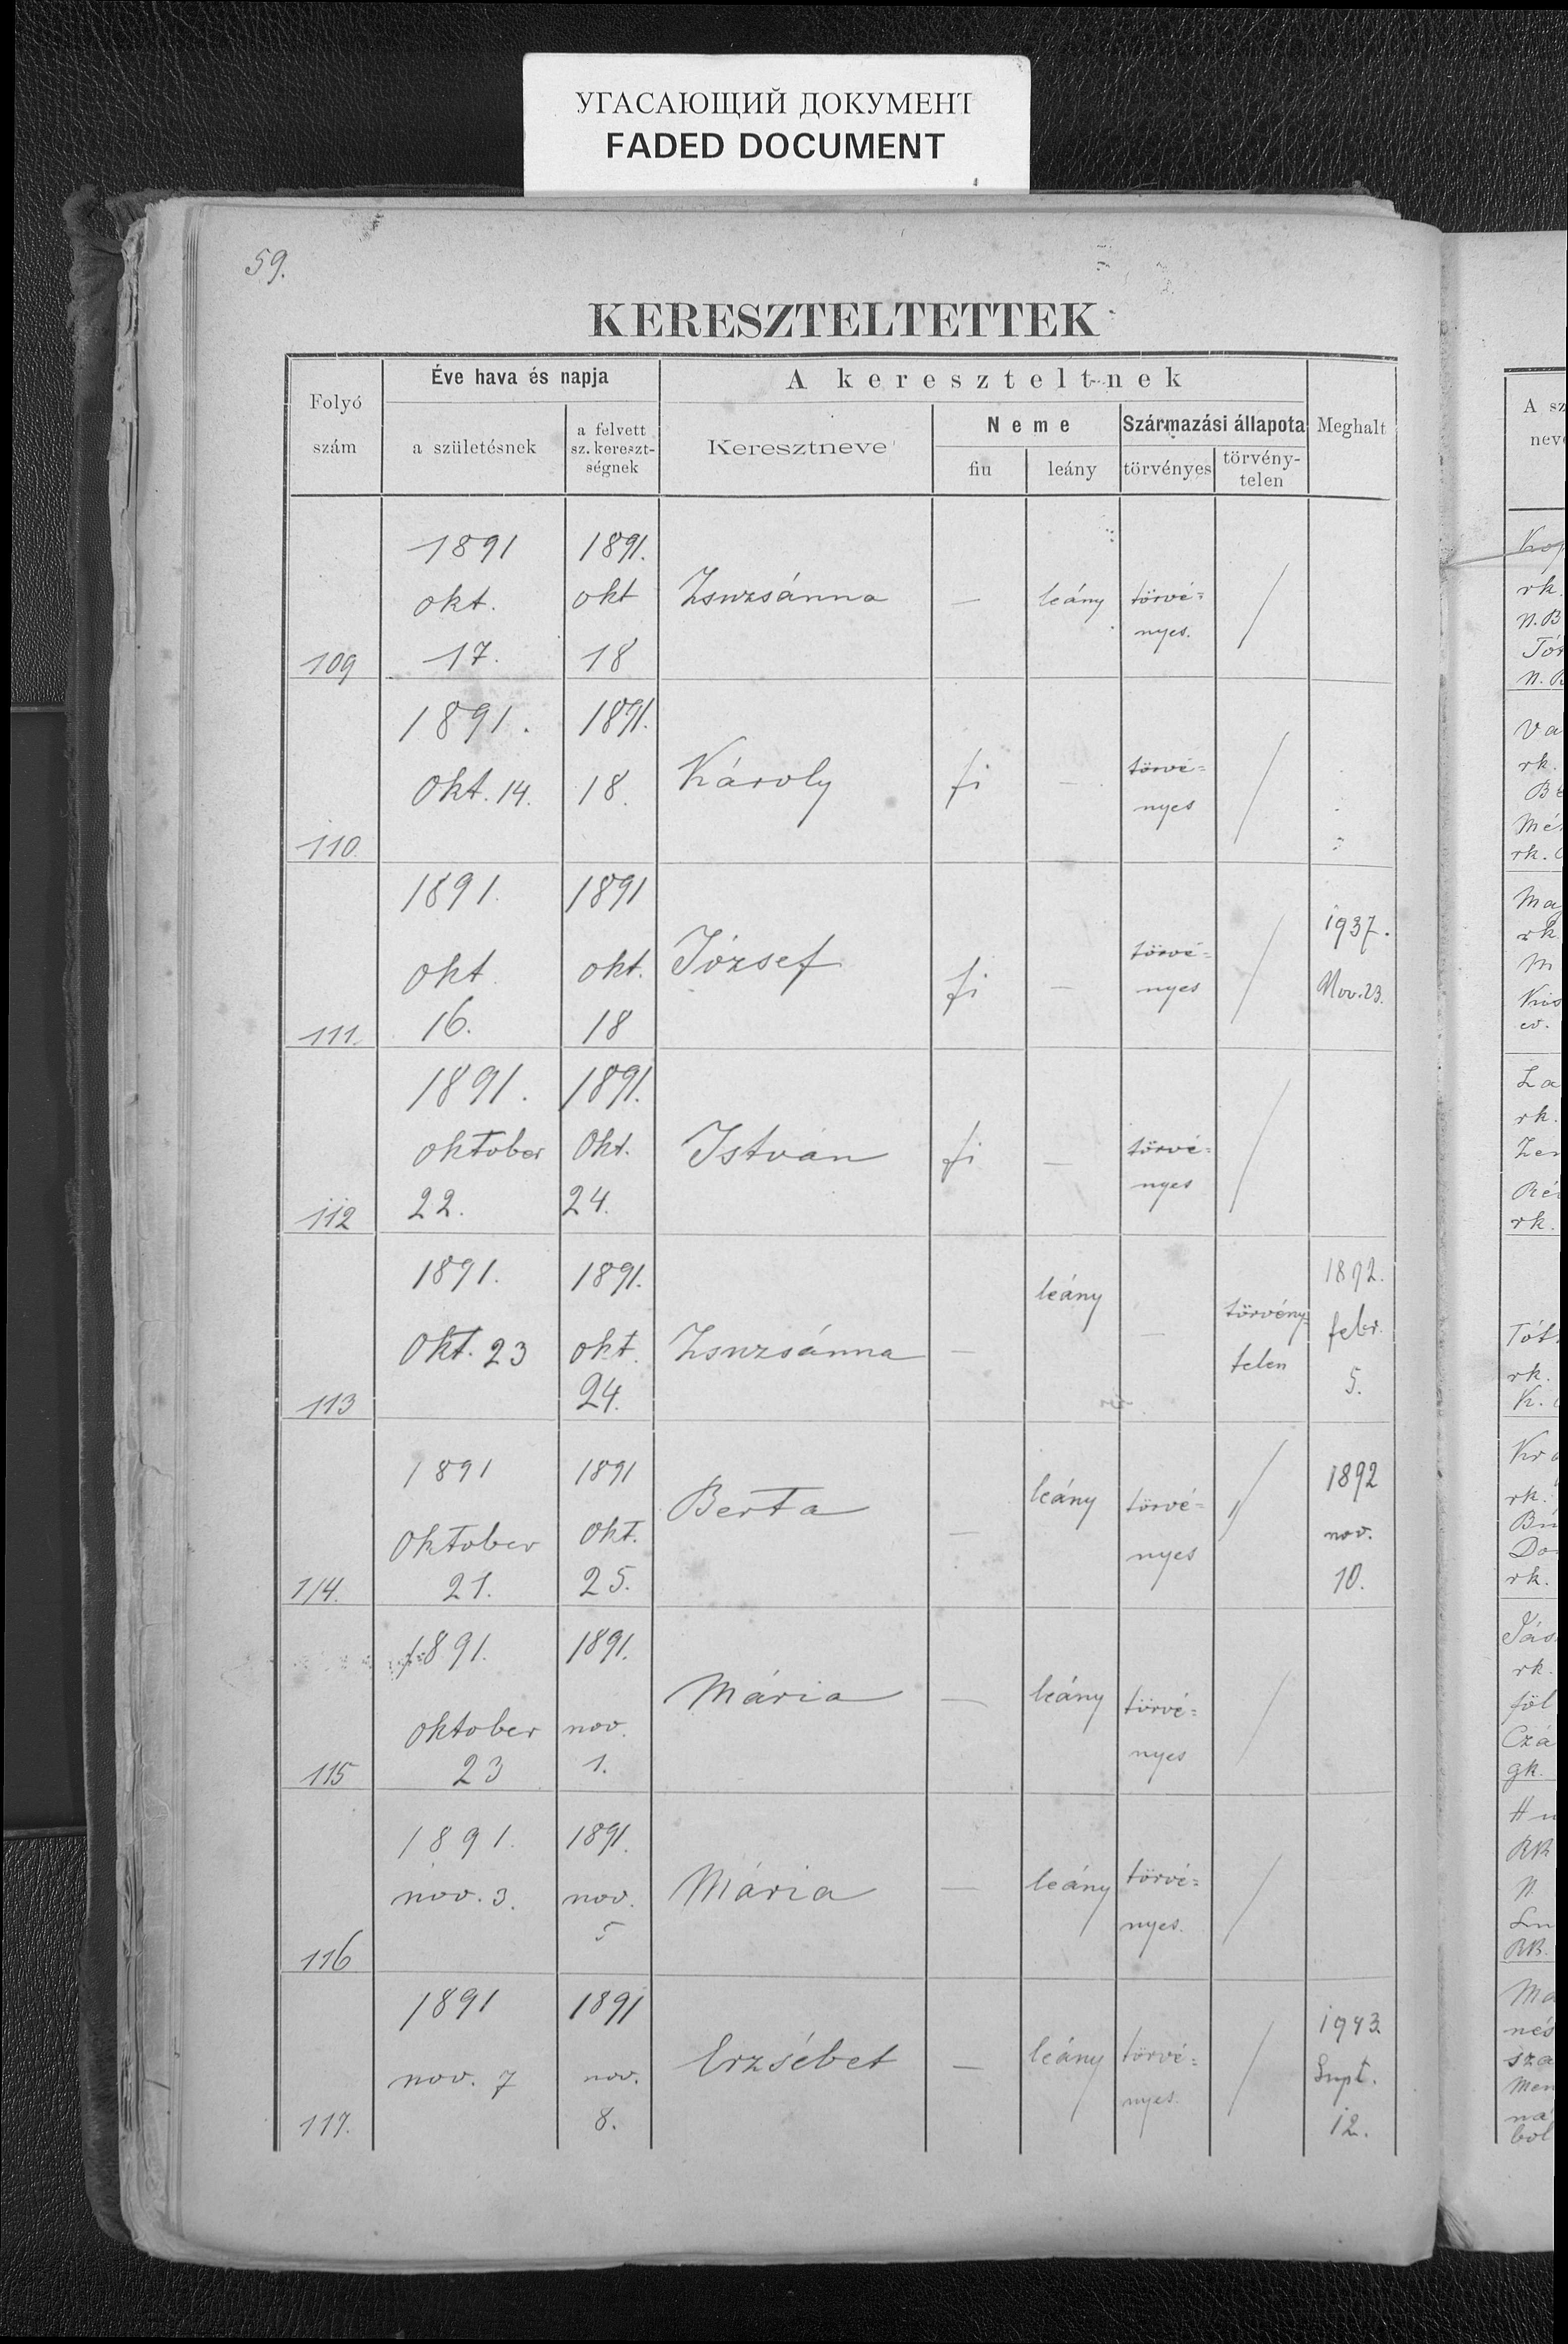 УГАСАЮЩИЙ ДОКУМЕНТ
FADED DOCUMENT
59.
KERESZTELTETTEK
Folyó szám
Éve hava és napja
a születésnek
a felvett sz. kereszt-ségnek
A kereszteltnek
Keresztneve
Neme
fiu
leány
Származási állapota
törvényes
törvény-telen
Meghalt
109
1891 okt. 17.
1891. okt 18
Zsuzsánna
—
leány
törvé= nyes.
110
1891. Okt. 14.
1891. 18.
Károly
fi
—
törvé= nyes
111.
1891. okt 16.
1891 okt. 18
József
fi
—
törvé= nyes
1937. Nov. 23.
112
1891. oktober 22.
1891. Okt. 24.
István
fi
—
törvé= nyes
113
1891. Okt. 23
1891. okt. 24.
Zsuzsánna
—
leány
—
törvény= telen
1892. febr. 5.
114.
1891 Oktober 21.
1891 Okt. 25.
Berta
—
leány
törvé= nyes
1892 nov. 10.
115
1891. oktober 23
1891. nov. 1.
Mária
—
leány
törvé= nyes
116
1891. nov. 3.
1891. nov. 5
Mária
—
leány
törvé= nyes.
117.
1891 nov. 7
1891 nov. 8.
Erzsébet
—
leány
törvé= nyes.
1943 Szept. 12.
A sz
neve
rk.
N. B
Tót
N. B
Va
rk.
Mé
rk.
Ma
rk
Kis
ev.
La
rk.
rk.
Tót
rk.
K.
rk.
Do
rk.
rk.
föl
Czá
gk.
N
RR.
nés
sza
Men
ná
ból